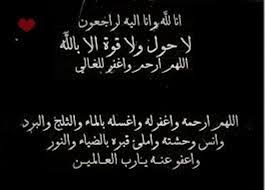 انا لله وانا اليه لراجعون
لا حول ولا قوة الا بالله
اللهم ارحم واغفر للغالي
اللهم ارحمه واغفر له واغسله بالماء والثلج والبرد
وانس وحشته واملئ قبره بالضياء والنور
واعفو عنه يارب العالمين